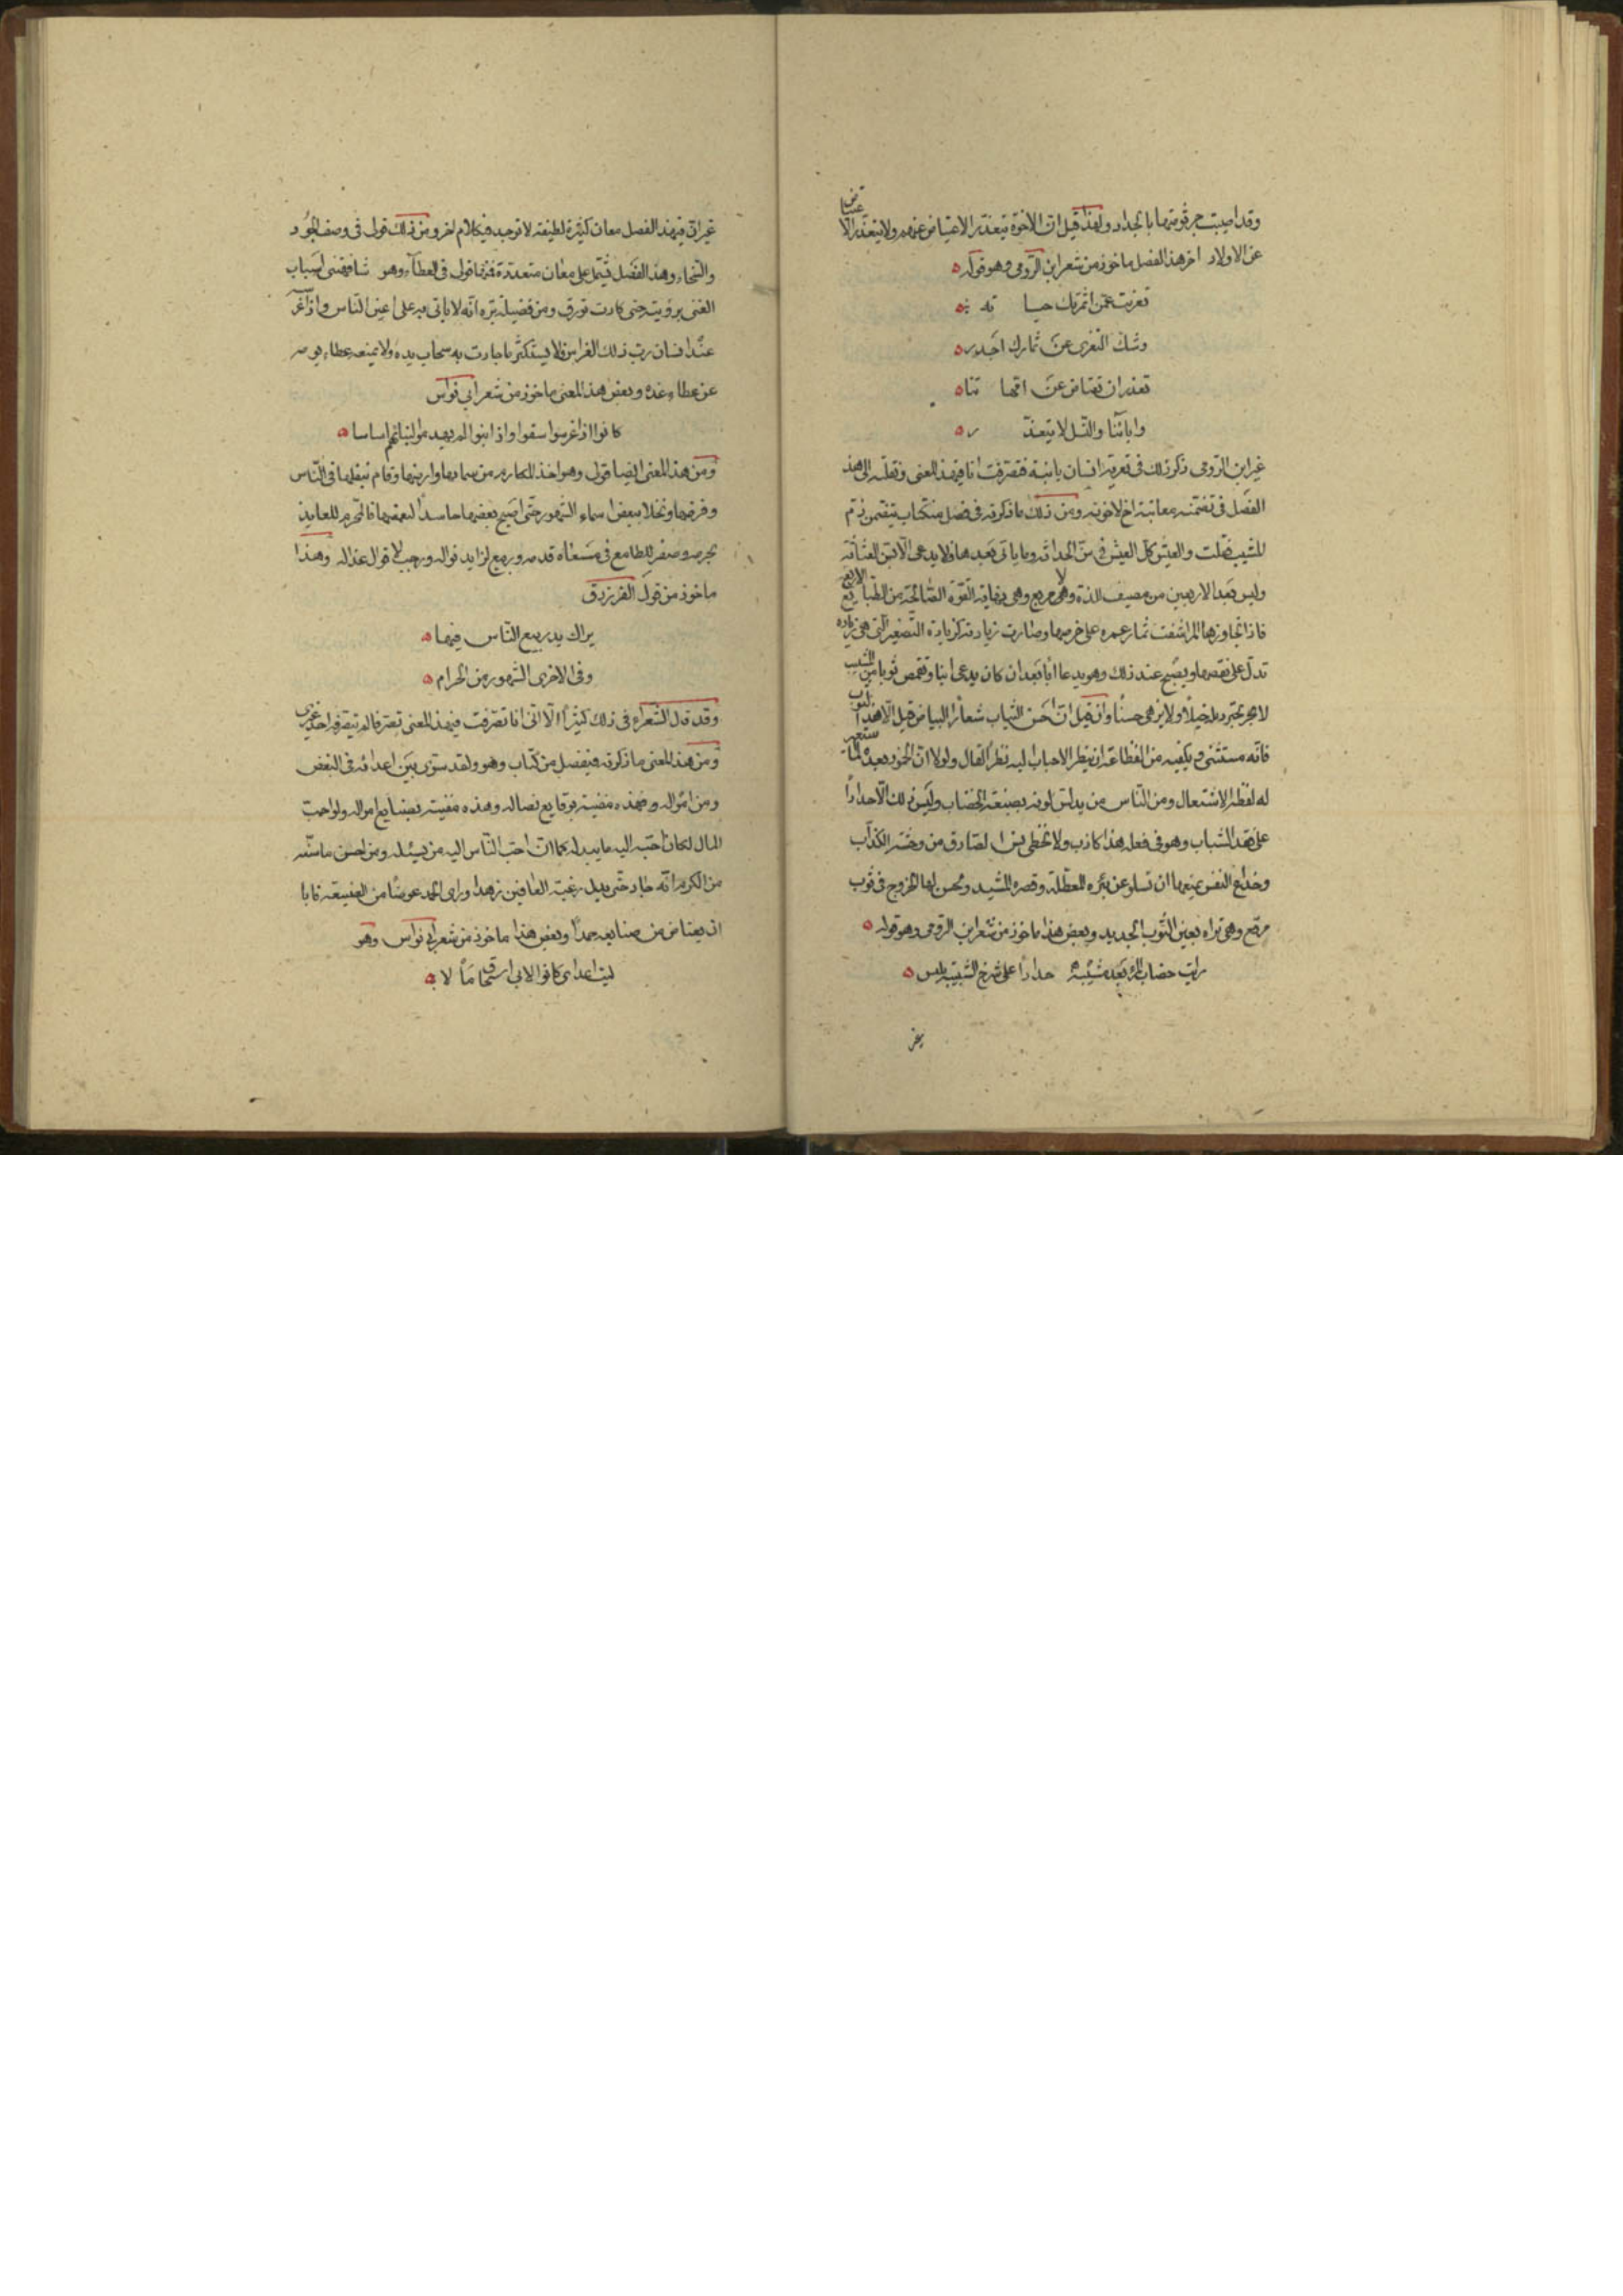 وقد اصيبت جرثومتها بالجداد ولهذا قيل ان الاخوة يتعذر الاعتياض عنهم ولا يتعذر الاعتياض
عن الاولاد اخر هذا الفصل ماخوذ من شعر ابن الرومي وهو قوله
تعزيت عمن اثمرتك حيا ته
وشك التعزى عن ثمارك اجدر
تعذر ان تعتاض عن امها تنا
وابائنا والنسل لا يتعذ ر
غير ابن الرومي ذكر ذلك في تعزية انسان بابنة فتصرفت انا في هذا المعنى ونقلته الى هذ
الفصل في تضمنه معاتبة اخ لاخوته ومن ذلك ما ذكرته في فصل من كتاب يتضمن ذم
المشيب فقلت والعيش كل العيش في سن الحداثه وما ياتى بعدها فلا يدعى الا بسن الغثاثه
وليس بعد الاربعين من مصيف للذة ولا مربع وهى نهاية القوة الصالحة من الطبايع الاربع
فاذا تجاوزها المرء اشفت ثمار عمره على خرصها وصارت زيادته كزيادة التصغير التى هى زيادة
تدل على نقصها ويصبح عند ذلك وهو يدعا ابا بعد ان كان يدعى ابنا وتقمص ثوبا من المشيب
لا يجر بجره ذيله خيلا ولا يزهى حسنا وان قيل ان احسن الثياب شعار البياض قيل الا هذا الثوب
فانه مستثنى ويكفيه من الفظاعة ان ينظر الاحباب اليه نظر القال ولولا ان الخمود بعده لما استعير
له لفظ الاشتعال ومن الناس من يدلس لونه بصبغة الخضاب وليس ذلك الا حدادا
على فقد الشباب وهو في فعله هذا كاذب ولا تخفى لصادق من وحشة الكذاب
وخداع النفس يمنعها ان تسلو عن بئره المعطلة وقصره المشيد ويحسن لها الخروج فى ثوب
مرقع وهى تراه بعين الثوب الجديد وبعض هذا ماخوذ من شعر ابن الرومي وهو قوله
رايت خضاب المرء بعد مشيبه حدادا على شرخ الشبيبة يلبس
غير
غير ان في هذا الفصل معان كثيرة لطيفة لا توجد في كلام اخر ومن ذلك قولى في وصف الجود
والسخاء وهذا الفصل يشتمل على معان متعددة فمنها قولى فى العطاء وهو
الغنى برؤيته حتى كادت تورق ومن فضيلة بره انه لا ياتى به على اعين الناس واذا غر
عند انسان رب ذلك الغراس فلا يستكثر بما جادت به سحاب يده ولا يمنعه عطاء يومه
عن عطاء غده وبعض هذا المعنى ماخوذ من شعر ابي نواس
كانوا اذا غرسوا سقوا واذا بنوا لم يهدموا لبنائهم اساسا
ومن هذا المعنى ايضا قولى وهو اخذ المكارم من سمائها وارضها وقام بنقلها فى الناس
وفرضها ونحلا ببعض اسماء الشهور حتى اصبح بعضها حاسدا لبعضها فالمحرم للعايذ
بحرمه وصفر للطامع في مسعاه قدمه وربيع لزايد نواله ورجب لاقوال عذاله وهذا
ماخوذ من قول الفرزدق
يداك يد ربيع الناس فيها
وفى الاخرى الشهور من الحرام
وقد قال الشعراء فى ذلك كثيرا الا انى انا تصرفت في هذا المعنى تصرفا لم يتصرفه احد غيرى
ومن هذا المعنى ما ذكرته في فصل من كتاب وهو ولقد سوى بين اعدائه فى البغض
ومن امواله فهذه مفنية بوقايع نصاله وهذه مفنية بصنايع امواله ولو احب
المال لكان احبه اليه ما يبذله كما ان احب الناس اليه من يسئله ومن احسن ما سنه
من الكرم انه جاد حتى بدل رغبة العافين زهدا وراى الحمد عوضا من الصنيعة فابا
ان يعتاض من صنايعه حمدا وبعض هذا ماخوذ من شعر ابي نواس وهو
ليت اعداى كانوا لابي اسحق ما لا